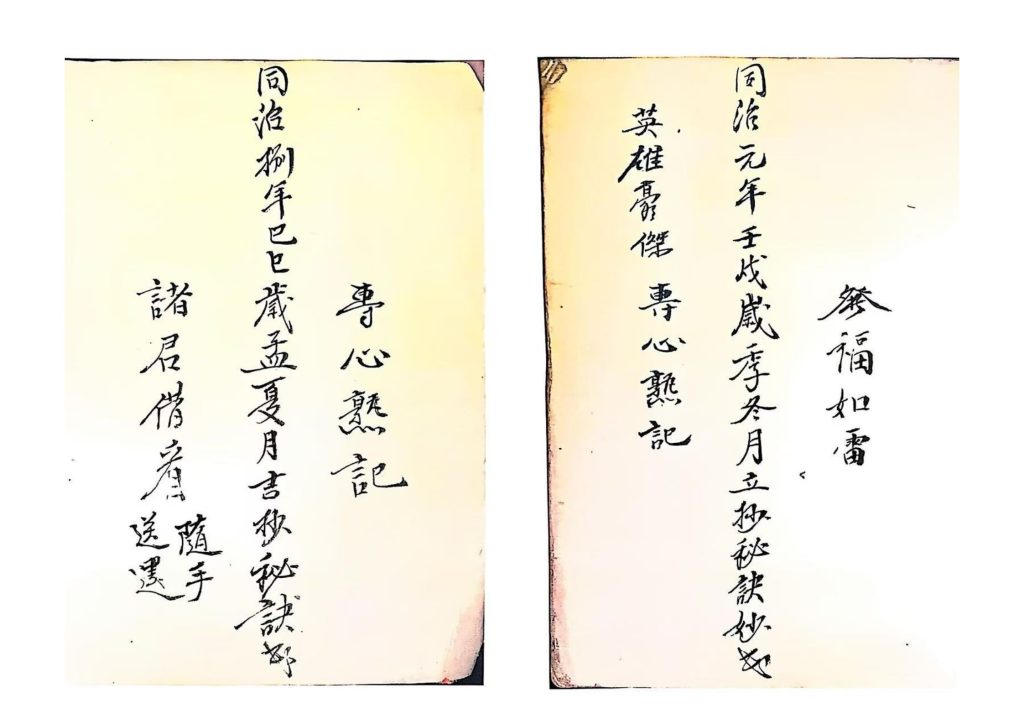 發福如雷
同治元年壬戌歲季冬月立抄秘訣妙
英雄豪傑 專心熟記
專心熟記
同治捌年己巳歲孟夏月吉抄秘訣
諸君借看
隨手
送還